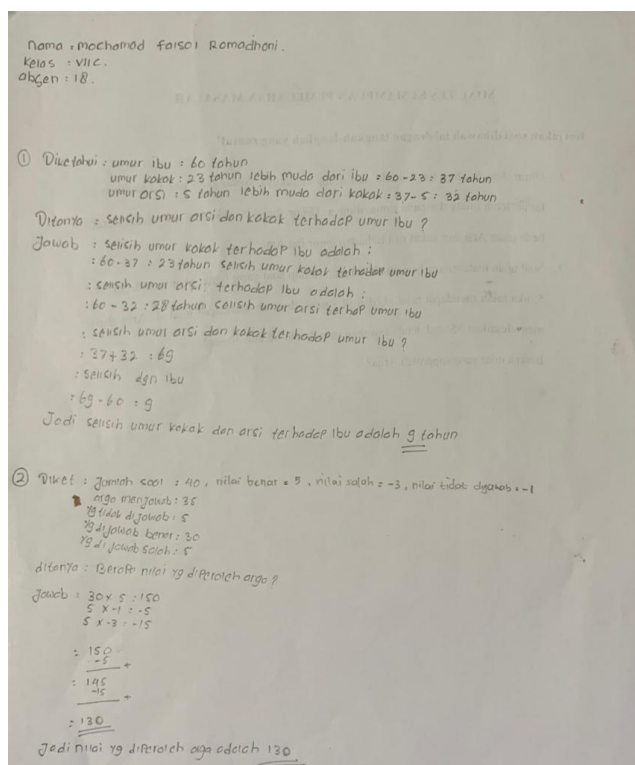 Nama : Mochamad Faisol Romadhoni.
Kelas : VII C.
absen : 18.
① Diketahui : umur ibu : 60 tahun
umur kakak : 23 tahun lebih muda dari ibu : 60 - 23 : 37 tahun
umur arsi : 5 tahun lebih muda dari kakak : 37 - 5 : 32 tahun
Ditanya : selisih umur arsi dan kakak terhadap umur ibu ?
Jawab : selisih umur kakak terhadap ibu adalah :
: 60 - 37 : 23 tahun selisih umur kakak terhadap umur ibu
: selisih umur arsi terhadap ibu adalah :
: 60 - 32 : 28 tahun selisih umur arsi terhap umur ibu
: selisih umur arsi dan kakak terhadap umur ibu ?
: 37 + 32 : 69
: selisih dgn ibu
: 69 - 60 : 9
Jadi selisih umur kakak dan arsi terhadap ibu adalah 9 tahun
② Diket : Jumlah soal : 40, nilai benar = 5, nilai salah = -3, nilai tidak dijawab = -1
argo menjawab : 35
yg tidak dijawab : 5
yg dijawab benar : 30
yg dijawab salah : 5
ditanya : Berapa nilai yg diperoleh argo ?
Jawab : 30 x 5 : 150
5 x -1 : -5
5 x -3 : -15
: 150
-5 +
: 145
-15 +
: 130
Jadi nilai yg diperoleh argo adalah 130